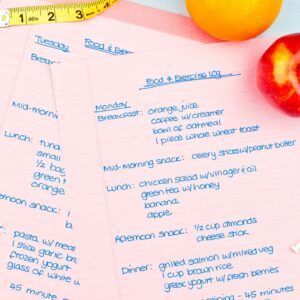 Food & Exercise Log
Monday
Breakfast: orange juice
coffee w/creamer
bowl of oatmeal
1 piece whole wheat toast
Mid-morning snack: celery sticks w/peanut butter
Lunch: chicken salad w/vinegar & oil
green tea w/honey
banana
apple
Afternoon snack: 1/2 cup almonds
cheese stick
Dinner: grilled salmon w/mixed veg
1 cup brown rice
greek yogurt w/fresh berries
45 minutes
Tuesday Food &
Mid-mornin
Lunch: tuna
small
1/2
green
orange
Afternoon snack:
pasta w/meat
1 slice garlic
frozen yogurt
glass of white
45 minute
1 2 3 4